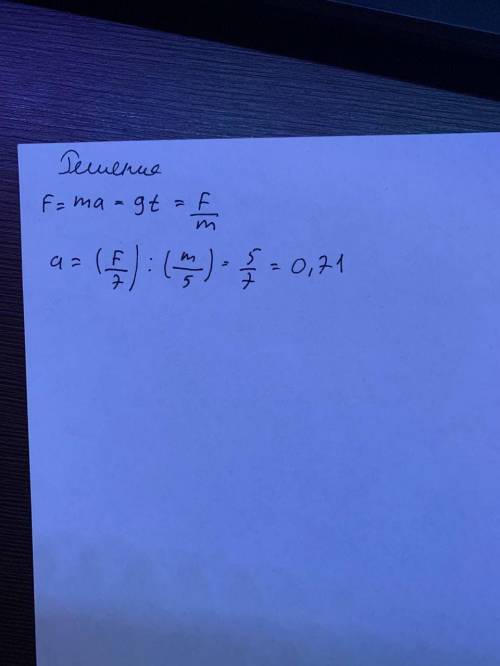 Решения
F = ma = gt = F/m
a = (F/7) : (m/5) = 5/7 = 0,71